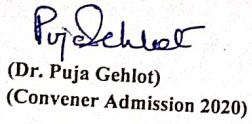 Puja Gehlot
(Dr. Puja Gehlot)
(Convener Admission 2020)